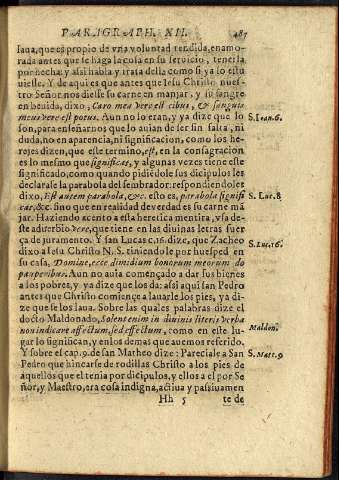 PARAGRAPH. XII. 487
laua, que es propio de vna voluntad rendida, enamo-
rada antes que se haga la cosa en su seruicio, tenerla
por hecha: y assi habla y trata della como si ya lo estu
uiesse. Y de aqui es que antes que Iesu Christo nues-
tro Señor nos diesse su carne en manjar, y su sangre
en beuida, dixo, Caro mea vere est cibus, & sanguis
meus vere est potus. Aun no lo eran, y ya dize que lo
son, para enseñarnos que lo auian de ser sin falta, ni
duda, no en aparencia, ni significacion, como los he-
rejes dizen, que este termino, est, en la consagracion
es lo mesmo que significat, y algunas vezes tiene este
significado, como quando pidiẽdole sus dicipulos les
declarasse la parabola del sembrador, respondiendoles
dixo, Est autem parabola, &c. esto es, parabola signifi
cat, &c. sino que en realidad de verdad es su carne mã
jar. Haziendo acento a esta heretica mentira, vsa de-
ste aduerbio vere, que tiene en las diuinas letras fuer
ça de juramento. Y san Lucas c. 16. dize, que Zacheo
dixo a Iesu Christo N. S. tiniendole por huesped en
su casa, Domine, ecce dimidium bonorum meorum do
pauperibus. Aun no auia començado a dar sus bienes
a los pobres, y ya dize que los da: assi aqui san Pedro
antes que Christo comiençe a lauarle los pies, ya di-
ze que se los laua. Sobre las quales palabras dize el
docto Maldonado, Solent enim in diuinis literis verba
non indicare affectum, sed effectum, como en este lu-
gar lo significan, y en los demas que auemos referido.
Y sobre el cap. 9. de san Matheo dize: Pareciale a San
Pedro que hincarse de rodillas Christo a los pies de
aquellos que el tenia por dicipulos, y ellos a el por Se
ñor, y Maestro, era cosa indigna, actiua y passiuamen
Hh 5 te de
S. Ioan. 6.
S. Luc. 8
S. Luc. 16.
Maldon.
S. Matt. 9